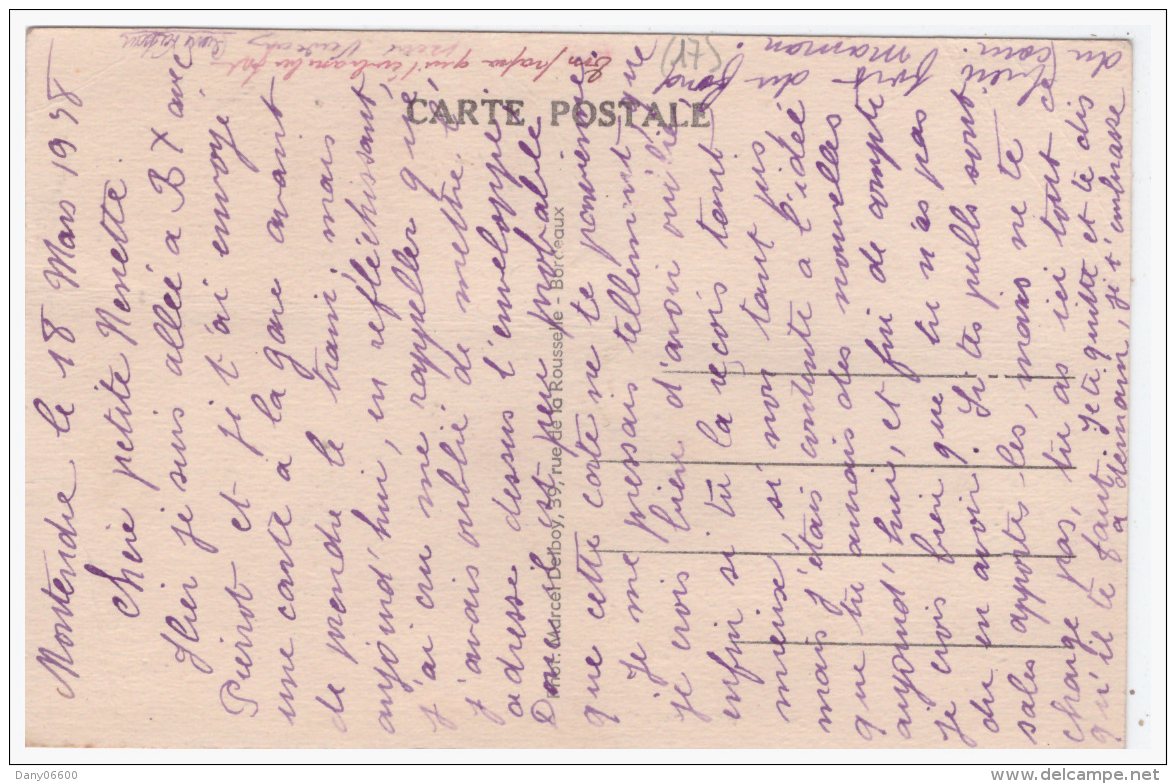 Montendre le 18 Mars 1958
Chère petite Nenette
Hier je suis allée a BX avec
Pierrot et je t'ai envoyé
une carte a la gare avant
de prendre le train mais
aujourd'hui, en refléchissant
j'ai cru me rappeller que
j'avais oublié de mettre l'
adresse dessus l'enveloppe
Donc il est peu probable
que cette carte ne te parvienne
Je me pressais tellement que
je crois bien d'avoir oublié
enfin si tu la recois tant
mieux, si non tant pis
mais j'étais contente a l'idée
que tu aurais des nouvelles
aujourd'hui, et fin de compte
je crois bien que tu n'as pas
du en avoir. Si tes pulls sont
sales apportes les, mais ne te
charge pas, tu as ici tout ce
qu'il te faut. Je te quitte et te dis
a demain, je t'embrasse
bien fort du fond
du Cœur. maman.
Ton papa qui t'embrasse bien fort
(17)
CARTE POSTALE
Phot. Marcel Delboy, 39, rue de la Rousselle - Bordeaux
Dany06600
www.delcampe.net